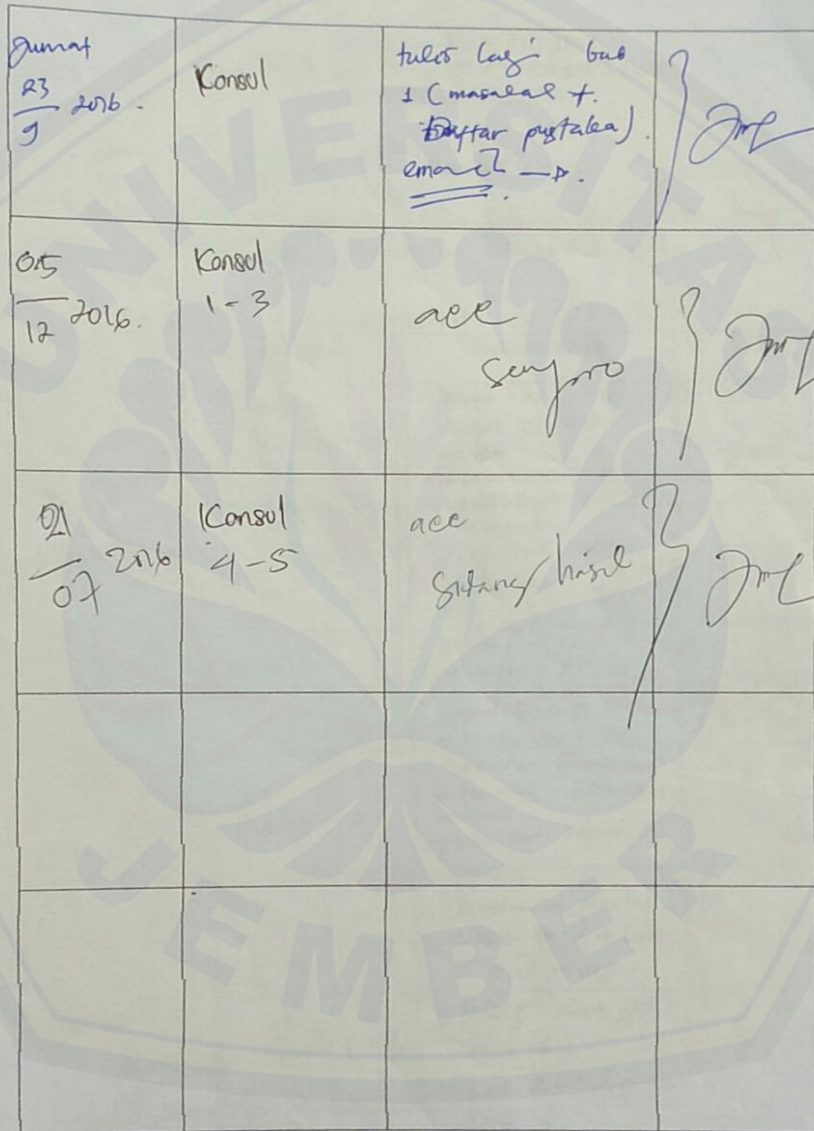 Jumat
23
9 2016.
Konsul
tulis lagi bab
1 (masalah +
Daftar pustaka)
05
12 2016.
Konsul
1-3
acc
sempro
21
07 2016
Konsul
4-5
acc
Sidang/hasil
UNIVERSITAS
JEMBER